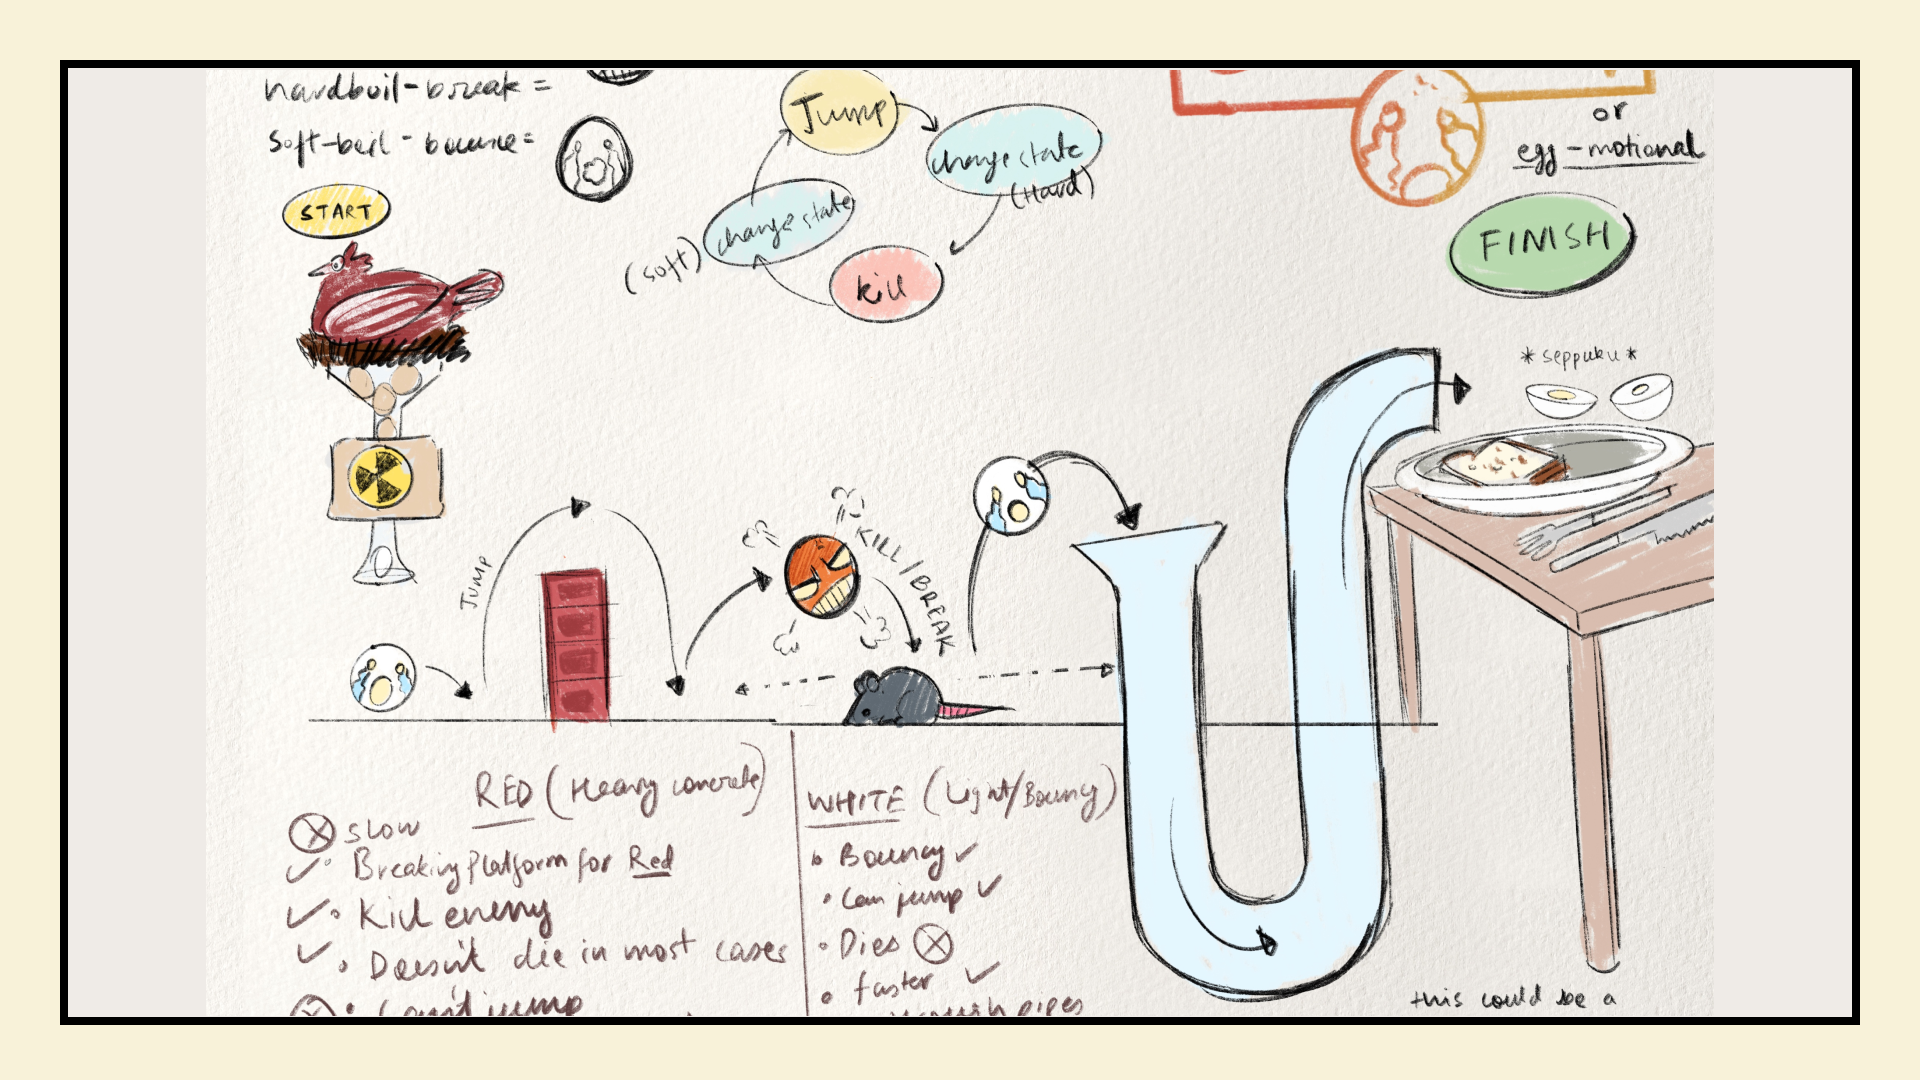 hardboil-break =
soft-boil - bounce =
START
Jump
change state
(Hard)
kill
change state
(soft)
or
egg-motional
FINISH
*seppuku*
JUMP
KILL/BREAK
RED (Heavy concrete)
slow
Breaking Platform for Red
Kill enemy
Doesn't die in most cases
Can't jump
WHITE (Light/Bouncy)
Bouncy
Can jump
Dies
faster
through pipes
this could be a